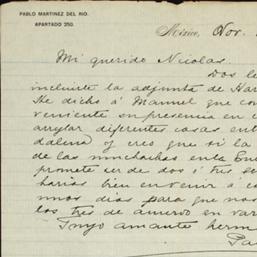 PABLO MARTINEZ DEL RIO.
APARTADO 250.
México, Nov.
Mi querido Nicolas,
Dos le
incluirte la adjunta de Har
He dicho á Manuel que con
veniente su presencia en
arreglar diferentes cosas ent
dalena y creo que si la
de las muchachas en la
promete ser de dos ó tres se
harias bien en venir á
unos dias para que nos
los tres de acuerdo en var
Tuyo amante herm
Pa